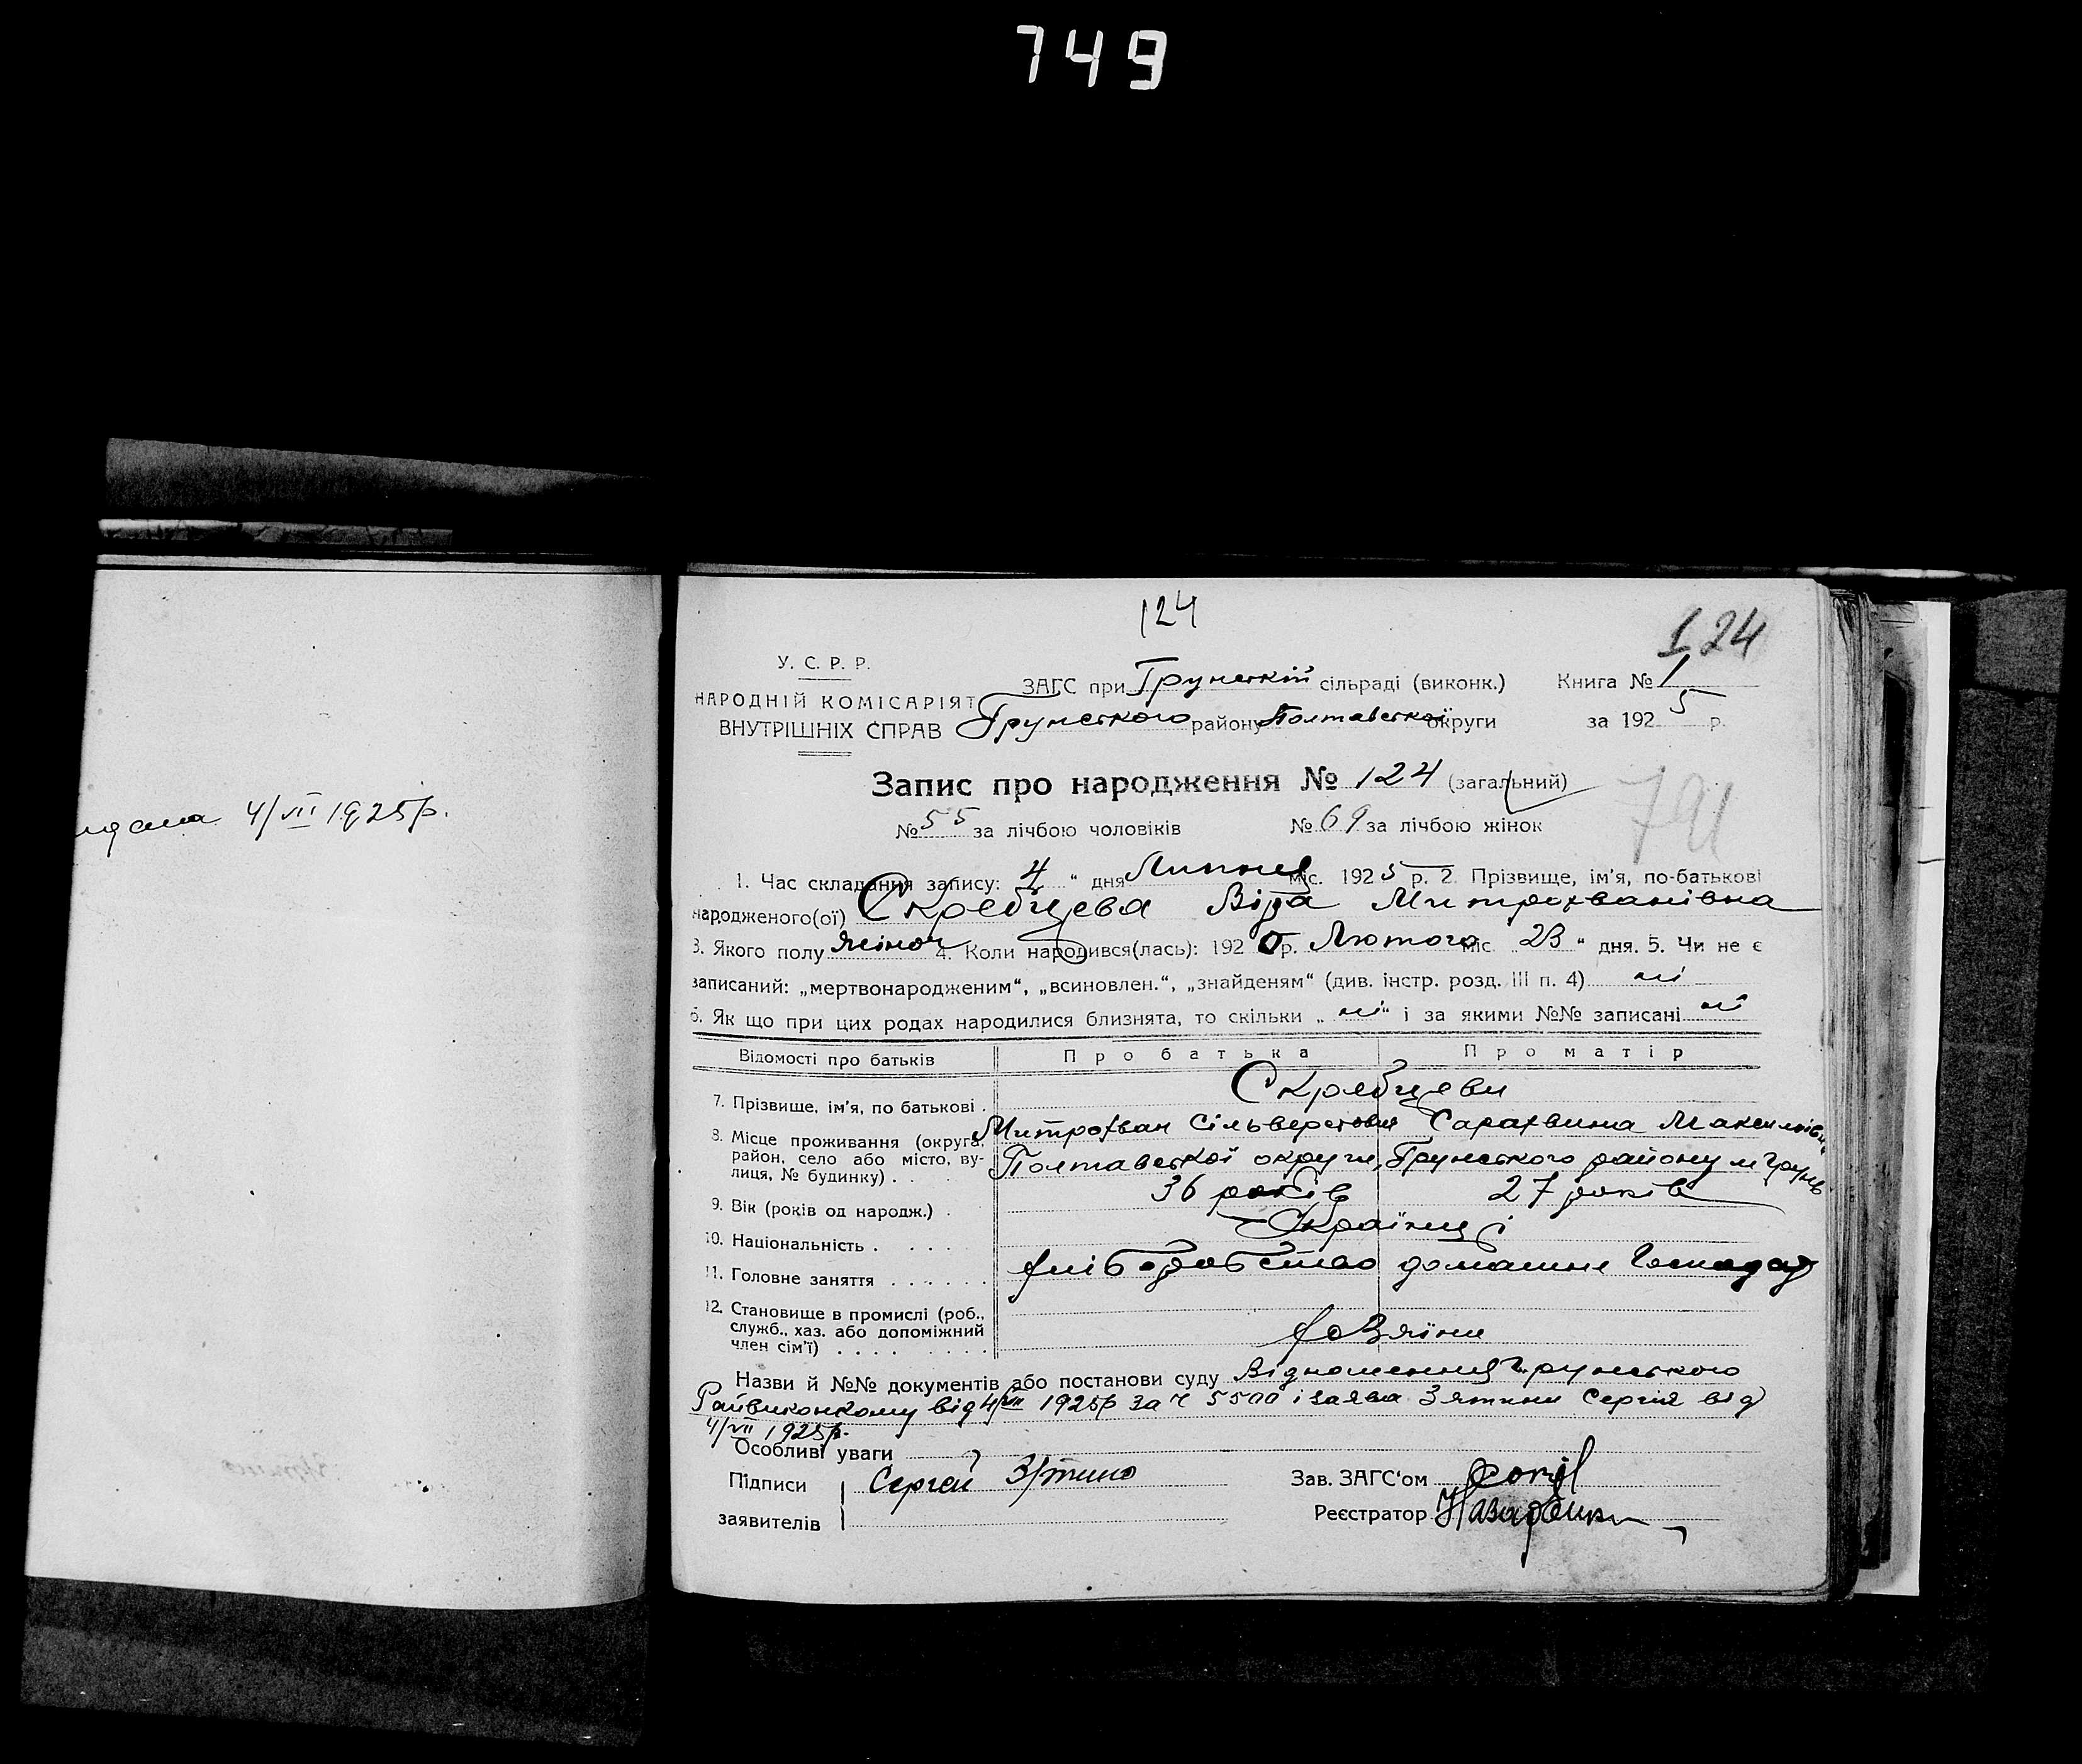 749
124
124
У. С. Р. Р.
НАРОДНІЙ КОМІСАРІЯТ
ВНУТРІШНІХ СПРАВ
ЗАГС при Грунській сільраді (виконк.) Книга № 1
Грунського району Полтавської округи за 1925 р.
Запис про народження № 124 (загальний)
791
№ 55 за лічбою чоловіків № 69 за лічбою жінок
видана 4/VII 1925р.
1. Час складання запису: 4 " дня Липня міс. 1925 р. 2. Прізвище, ім'я, по-батькові
народженого(ої) Скребцева Віра Митрохванівна
3. Якого полу жіноч 4. Коли народився(лась): 1920 р. Лютого міс. 23 " дня. 5. Чи не є
записаний: „мертвонародженим“, „всиновлен.“, „знайденям“ (див. інстр. розд. III п. 4) ні
6. Як що при цих родах народилися близнята, то скільки „ ні “ і за якими №№ записані ні
Відомості про батьків Про батька Про матір
7. Прізвище, ім'я, по батькові . Скребцеви
Митрохван Сільверстовия Сарахвима Максимівн
8. Місце проживання (округа, район, село або місто, вулиця, № будинку) . . Полтавської округи, Грунського району м Грунь
9. Вік (років од народж.) . 36 років 27 років
10. Національність . . . . . Українці
11. Головне заняття . . . . . . хліборобство домашнє Господар
12. Становище в промислі (роб., служб., хаз. або допоміжний член сім'ї) . . . . . . . . . хозяїни
Назви й №№ документів або постанови суду Відношення Грунського
Райвиконкому від 4/VII 1925р за ч 5500 і заява Зятини Сергія від
4/VII 1925р.
Особливі уваги
Підписи Сергей Зятино Зав. ЗАГС'ом
заявителів Реєстратор Назаренк